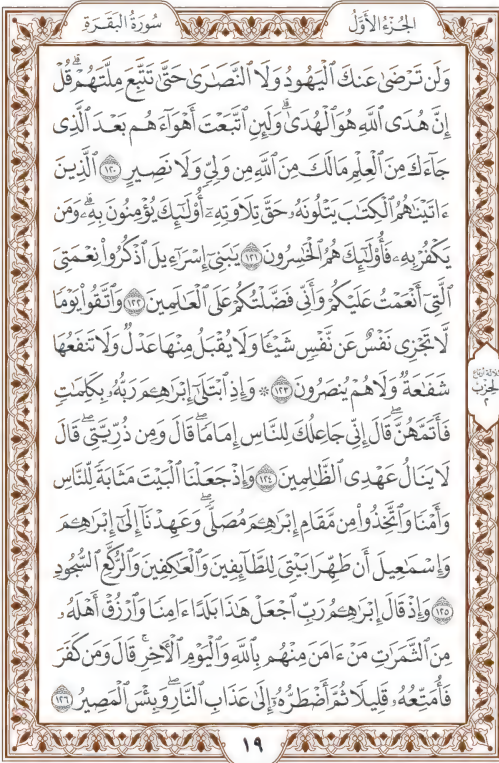 الجُزْءُ الأَوَّلُ
سُورَةُ البَقَرَةِ
وَلَن تَرْضَىٰ عَنكَ ٱلْيَهُودُ وَلَا ٱلنَّصَٰرَىٰ حَتَّىٰ تَتَّبِعَ مِلَّتَهُمْۗ قُلْ
إِنَّ هُدَى ٱللَّهِ هُوَ ٱلْهُدَىٰۗ وَلَئِنِ ٱتَّبَعْتَ أَهْوَآءَهُم بَعْدَ ٱلَّذِى
جَآءَكَ مِنَ ٱلْعِلْمِ مَا لَكَ مِنَ ٱللَّهِ مِن وَلِىٍّ وَلَا نَصِيرٍ ١٢٠ ٱلَّذِينَ
ءَاتَيْنَٰهُمُ ٱلْكِتَٰبَ يَتْلُونَهُۥ حَقَّ تِلَاوَتِهِۦٓ أُو۟لَٰٓئِكَ يُؤْمِنُونَ بِهِۦۗ وَمَن
يَكْفُرْ بِهِۦ فَأُو۟لَٰٓئِكَ هُمُ ٱلْخَٰسِرُونَ ١٢١ يَٰبَنِىٓ إِسْرَٰٓءِيلَ ٱذْكُرُوا۟ نِعْمَتِىَ
ٱلَّتِىٓ أَنْعَمْتُ عَلَيْكُمْ وَأَنِّى فَضَّلْتُكُمْ عَلَى ٱلْعَٰلَمِينَ ١٢٢ وَٱتَّقُوا۟ يَوْمًا
لَّا تَجْزِى نَفْسٌ عَن نَّفْسٍ شَيْـًٔا وَلَا يُقْبَلُ مِنْهَا عَدْلٌ وَلَا تَنفَعُهَا
شَفَٰعَةٌ وَلَا هُمْ يُنصَرُونَ ١٢٣ ۞ وَإِذِ ٱبْتَلَىٰٓ إِبْرَٰهِـۧمَ رَبُّهُۥ بِكَلِمَٰتٍ
فَأَتَمَّهُنَّۖ قَالَ إِنِّى جَاعِلُكَ لِلنَّاسِ إِمَامًاۖ قَالَ وَمِن ذُرِّيَّتِىۖ قَالَ
لَا يَنَالُ عَهْدِى ٱلظَّٰلِمِينَ ١٢٤ وَإِذْ جَعَلْنَا ٱلْبَيْتَ مَثَابَةً لِّلنَّاسِ
وَأَمْنًا وَٱتَّخِذُوا۟ مِن مَّقَامِ إِبْرَٰهِـۧمَ مُصَلًّىۖ وَعَهِدْنَآ إِلَىٰٓ إِبْرَٰهِـۧمَ
وَإِسْمَٰعِيلَ أَن طَهِّرَا بَيْتِىَ لِلطَّآئِفِينَ وَٱلْعَٰكِفِينَ وَٱلرُّكَّعِ ٱلسُّجُودِ
١٢٥ وَإِذْ قَالَ إِبْرَٰهِـۧمُ رَبِّ ٱجْعَلْ هَٰذَا بَلَدًا ءَامِنًا وَٱرْزُقْ أَهْلَهُۥ
مِنَ ٱلثَّمَرَٰتِ مَنْ ءَامَنَ مِنْهُم بِٱللَّهِ وَٱلْيَوْمِ ٱلْءَاخِرِۚ قَالَ وَمَن كَفَرَ
فَأُمَتِّعُهُۥ قَلِيلًا ثُمَّ أَضْطَرُّهُۥٓ إِلَىٰ عَذَابِ ٱلنَّارِۖ وَبِئْسَ ٱلْمَصِيرُ ١٢٦
الحزب
٢
١٩